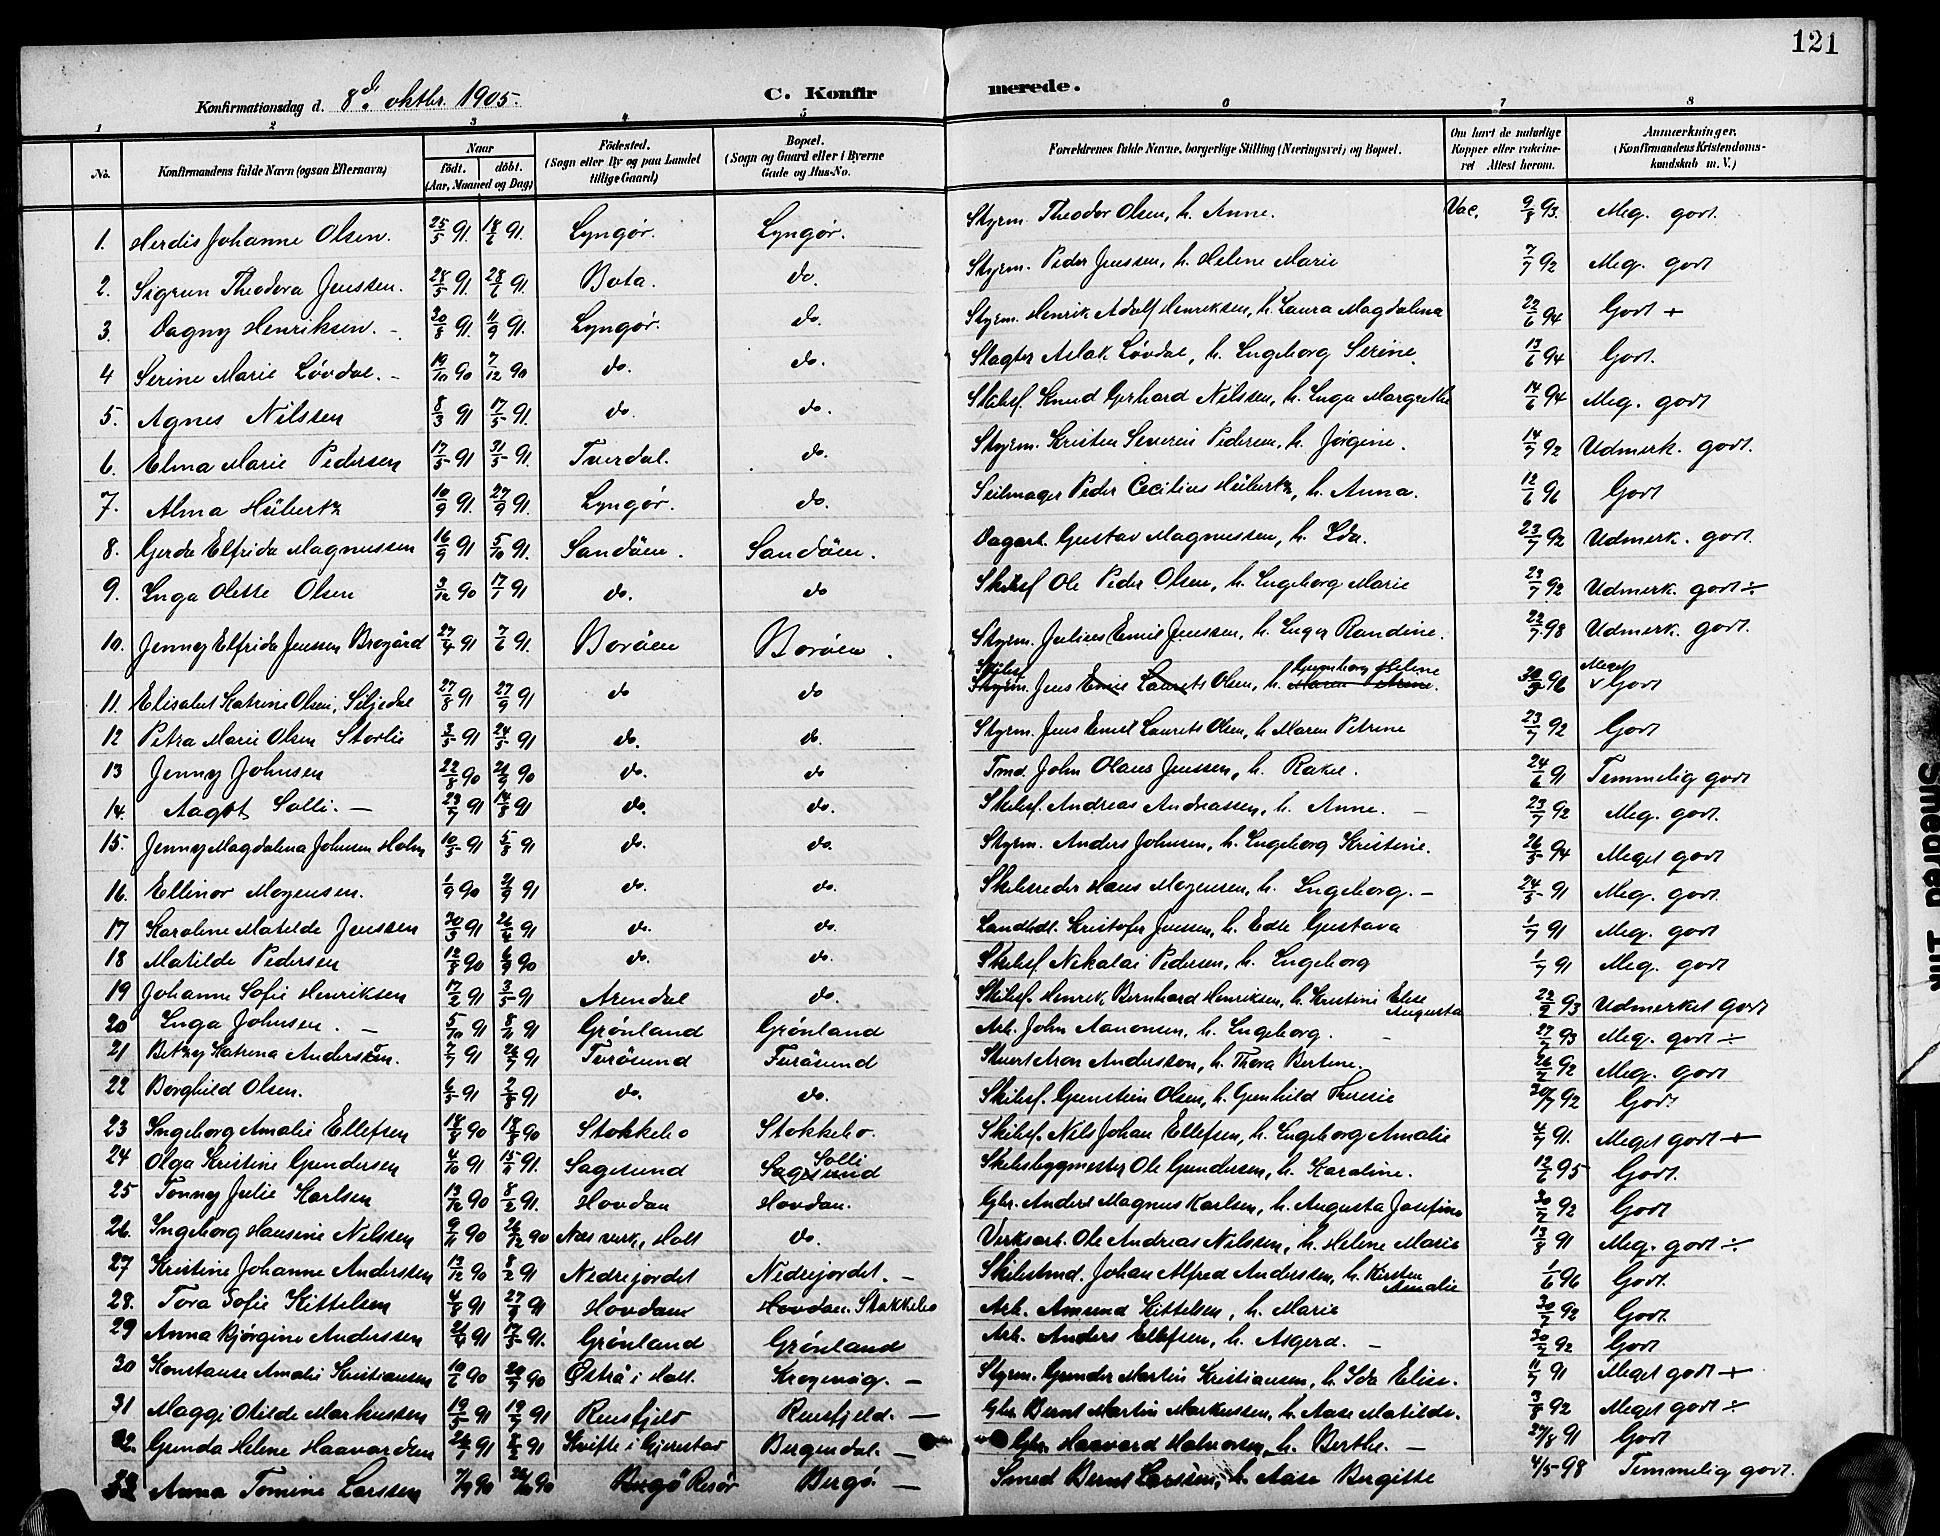 121
Konfirmationsdag d. 8de oktbr. 1905.
C. Konfirmerede.
1 2 3 4 5 6 7 8
No. Konfirmandens fulde Navn (ogsaa Efternavn) Naar født. døbt. (Aar, Maaned og Dag) Fødested. (Sogn eller By og paa Landet tillige Gaard) Bopæl. (Sogn og Gaard eller i Byerne Gade og Hus-No. Forældrenes fulde Navne, borgerlige Stilling (Næringsvei) og Bopæl. Om havt de naturlige Kopper eller vakcineret Attest herom. Anmærkninger. (Konfirmandens Kristendomskundskab m. V.)
1. Herdis Johanne Olsen. 25/5 91. 18/6 91. Lyngør. Lyngør. Styrm. Theodor Olsen, h. Anne. Vac. 9/8 93. Meg. godt.
2. Sigrun Theodora Jenssen. 28/5 91. 28/6 91. Bota. do. Styrm. Peder Jenssen, h. Helene Marie 7/7 92 Meg. godt
3. Dagny Henriksen. - 20/8 91. 11/9 91. Lyngør. do. Styrm. Henrik Adolf Henriksen, h. Laura Magdalena 22/6 94 Godt +
4 Serine Marie Løvdal. - 19/10 90 7/12 90 do. do. Slagter Aslak Løvdal, h. Ingeborg Serine. 13/6 94 Godt.
5. Agnes Nilssen 8/3 91 17/5 91. do. do. Skibsf. Knud Gerhard Nilssen, h. Inga Margrethe 14/6 94 Meg. godt
6. Elma Marie Pedersen 17/5 91 31/5 91. Tverdal. do. Styrm. Kristen Severin Pedersen, h. Jørgine. 14/7 92 Udmerk. godt.
7. Alma Hübertz 10/9 91. 27/9 91. Lyngør. do. Seilmager Peder Cecilius Hübertz, h. Anna. 12/6 96 Godt
8. Gerda Elfrida Magnussen 16/9 91 5/10 91. Sandøen. Sandøen. Dagarb. Gustav Magnussen, h. Ida. 23/7 92 Udmerk. godt.
9. Inga Olette Olsen 3/12 90 17/7 91 do. do Skibsf Ole Peder Olsen, h. Ingeborg Marie 23/7 92 Udmerk. godt ÷
10. Jenny Elfrida Jenssen Brogård 27/4 91 7/6 91. Borøen Borøen. Styrm. Julius Emil Jenssen, h. Inger Randine. 22/7 98 Udmerk. godt.
11. Elisabet Katrine Olsen, Siljedal 27/8 91 27/9 91 do do Skibsf Styrm. Jens Emil Laurets Olsen, h. Gunnborg Helene Maren Petrine. 96 Meget Godt
12 Petra Marie Olsen Storlie 3/5 91 24/5 91 do. do. Styrm. Jens Emil Laurets Olsen, h Maren Petrine 23/7 92 Godt
13 Jenny Johnsen 22/8 90 21/9 90 do. do Tmd. John Olaus Jenssen, h. Rakel. 24/6 91 Temmelig godt
14. Aagot Solli. - 23/7 91 14/8 91 do. do. Skibsf. Andreas Andreassen, h. Anne. - 23/7 92 Meg. godt.
15. Jenny Magdalena Johnsen Holm 10/5 91 5/8 91 do. do. Styrm. Anders Johnsen, h. Ingeborg Kristine. 26/5 94 Meget godt
16. Ellinor Mogensen. 1/9 90 21/9 91 do. do. Skibsreder Hans Mogensen, h. Ingeborg. - 24/5 91 Meg. godt
17 Karoline Matilde Jenssen 30/3 91 26/4 91 do. do. Landhdl. Kristofer Jenssen, h. Edle Gustava 1/7 91 Meg. godt
18 Matilde Pedersen 12/8 90 6/9 90 do. do. Skibsf. Nikolai Pedersen, h. Ingeborg 1/7 91 Meg. godt
19 Johanne Sofie Henriksen 17/2 91 3/5 91 Arendal do. Skibsf. Henrik Bernhard Henriksen, h. Kristine Elise Augusta 22/2 93 Udmerket godt
20 Inga Johnsen. - 5/10 91 8/11 91 Grönland Grönland Arb. John Aanonsen, h. Ingeborg. - 27/7 93 Meg. godt ÷
21 Betzy Katrena Anderssen. 7/7 91 26/7 91 Furøsund Furøsund Stuert Aron Andersson, h. Thora Bertine. 26/7 92 Meg. godt
22 Borghild Olsen. 6/5 91 2/8 91 do. do. Skibsf. Gunstein Olsen, h. Gunhild Therese 30/7 92 Godt
23 Ingeborg Amalie Ellefsen 18/8 90 18/8 90 Stokkebo Stokkebo. Skibsf. Nils Johan Ellefsen, h. Ingeborg Amalie 4/7 91. Meget godt +
24 Olga Kristine Gundersen 4/10 91 15/11 91. Sagesund Sagesund Solli Skibsbygmester Ole Gundersen, h. Karoline. 12/6 95 Godt.
25 Tonny Julie Karlsen 13/12 90 8/2 91. Hovdan Hovdan. Gbr. Anders Magnus Karlsen, h. Augusta Josefine 30/7 92 Godt
26. Ingeborg Hansine Nilssen 9/11 90 26/12 90 Næs verk, Holt do. Verksarb. Ole Andreas Nilssen, h. Helene Marie 13/8 91 Meg. godt ÷
27 Kristine Johanne Anderssen 13/12 90 8/2 91 Nedrejordet Nedrejordet. - Skibstmd. Johan Alfred Anderssen, h. Kirsten Amalie 1/6 96 Godt.
28. Tora Sofie Kittelsen 4/8 91 27/9 91 Hovdan Hovdan. Stokkebo Arb. Amund Kittelsen, h. Marie 30/7 92 Godt.
29 Anna Bjørgine Anderssen 21/4 91 17/5 91. Grönland Grönland Arb. Anders Ellefsen, h. Asgerd. - 30/7 92 Godt
30 Konstanse Amalie Kristiansen 10/6 90 20/7 90 Østrå i Holt. Krogevåg. - Styrm. Gunder Martin Kristiansen, h. Ida Elise. 11/7 91 Meget godt +
31 Maggi Otilde Markussen 19/5 91 19/7 91 Rensfjeld Rensfjeld. - Gbr. Bernt Martin Markussen, h. Aase Matilde. 3/8 92 Meget godt ÷
32. Gunda Helene Haavardsen 91 91 Kvifte i Gjerstad Bergendal. - Gbr. Haavard Halvorsen, h. Berthe. - 27/8 91 Godt
33 Anna Tomine Larssen 7/9 90 90 Bergø Risør Bergø. - Smed Bernt Larssen, h. Aase Bergitte 4/5 98 Temmelig godt.